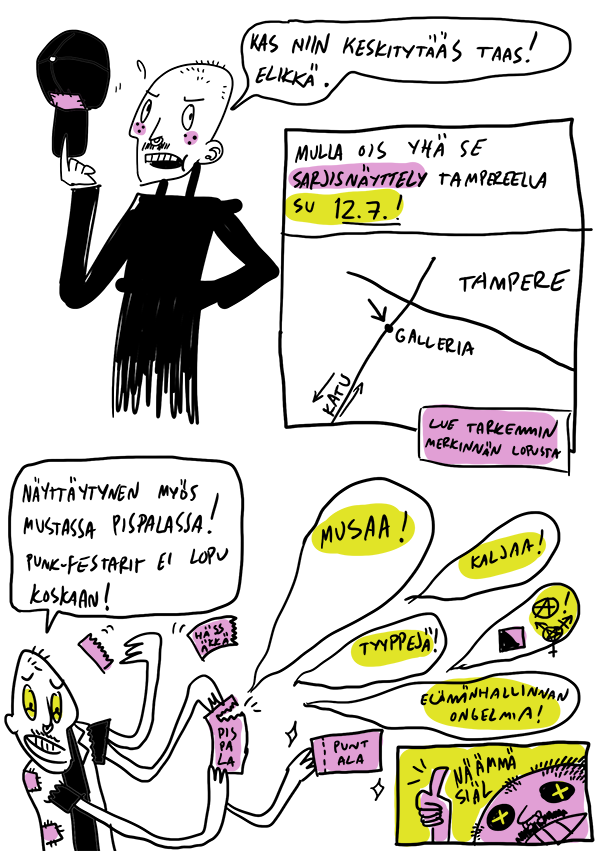 KAS NIIN KESKITYTÄÄS TAAS!
ELIKKÄ.
MULLA OIS YHÄ SE
SARJISNÄYTTELY TAMPEREELLA
SU 12.7.!
TAMPERE
GALLERIA
KATU
LUE TARKEMMIN
MERKINNÄN LOPUSTA
NÄYTTÄYTYNEN MYÖS
MUSTASSA PISPALASSA!
PUNK-FESTARIT EI LOPU
KOSKAAN!
MUSAA!
KALJAA!
TYYPPEJÄ!
ELÄMÄNHALLINNAN
ONGELMIA!
HÄSS
ÄKKÄ
PIS
PA
LA
PUNT
ALA
NÄÄMMÄ
SIÄL